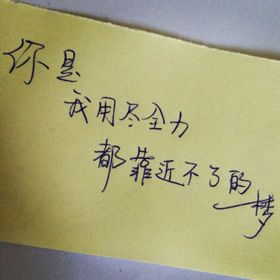 你是
我用尽全力
都靠近不了的
梦